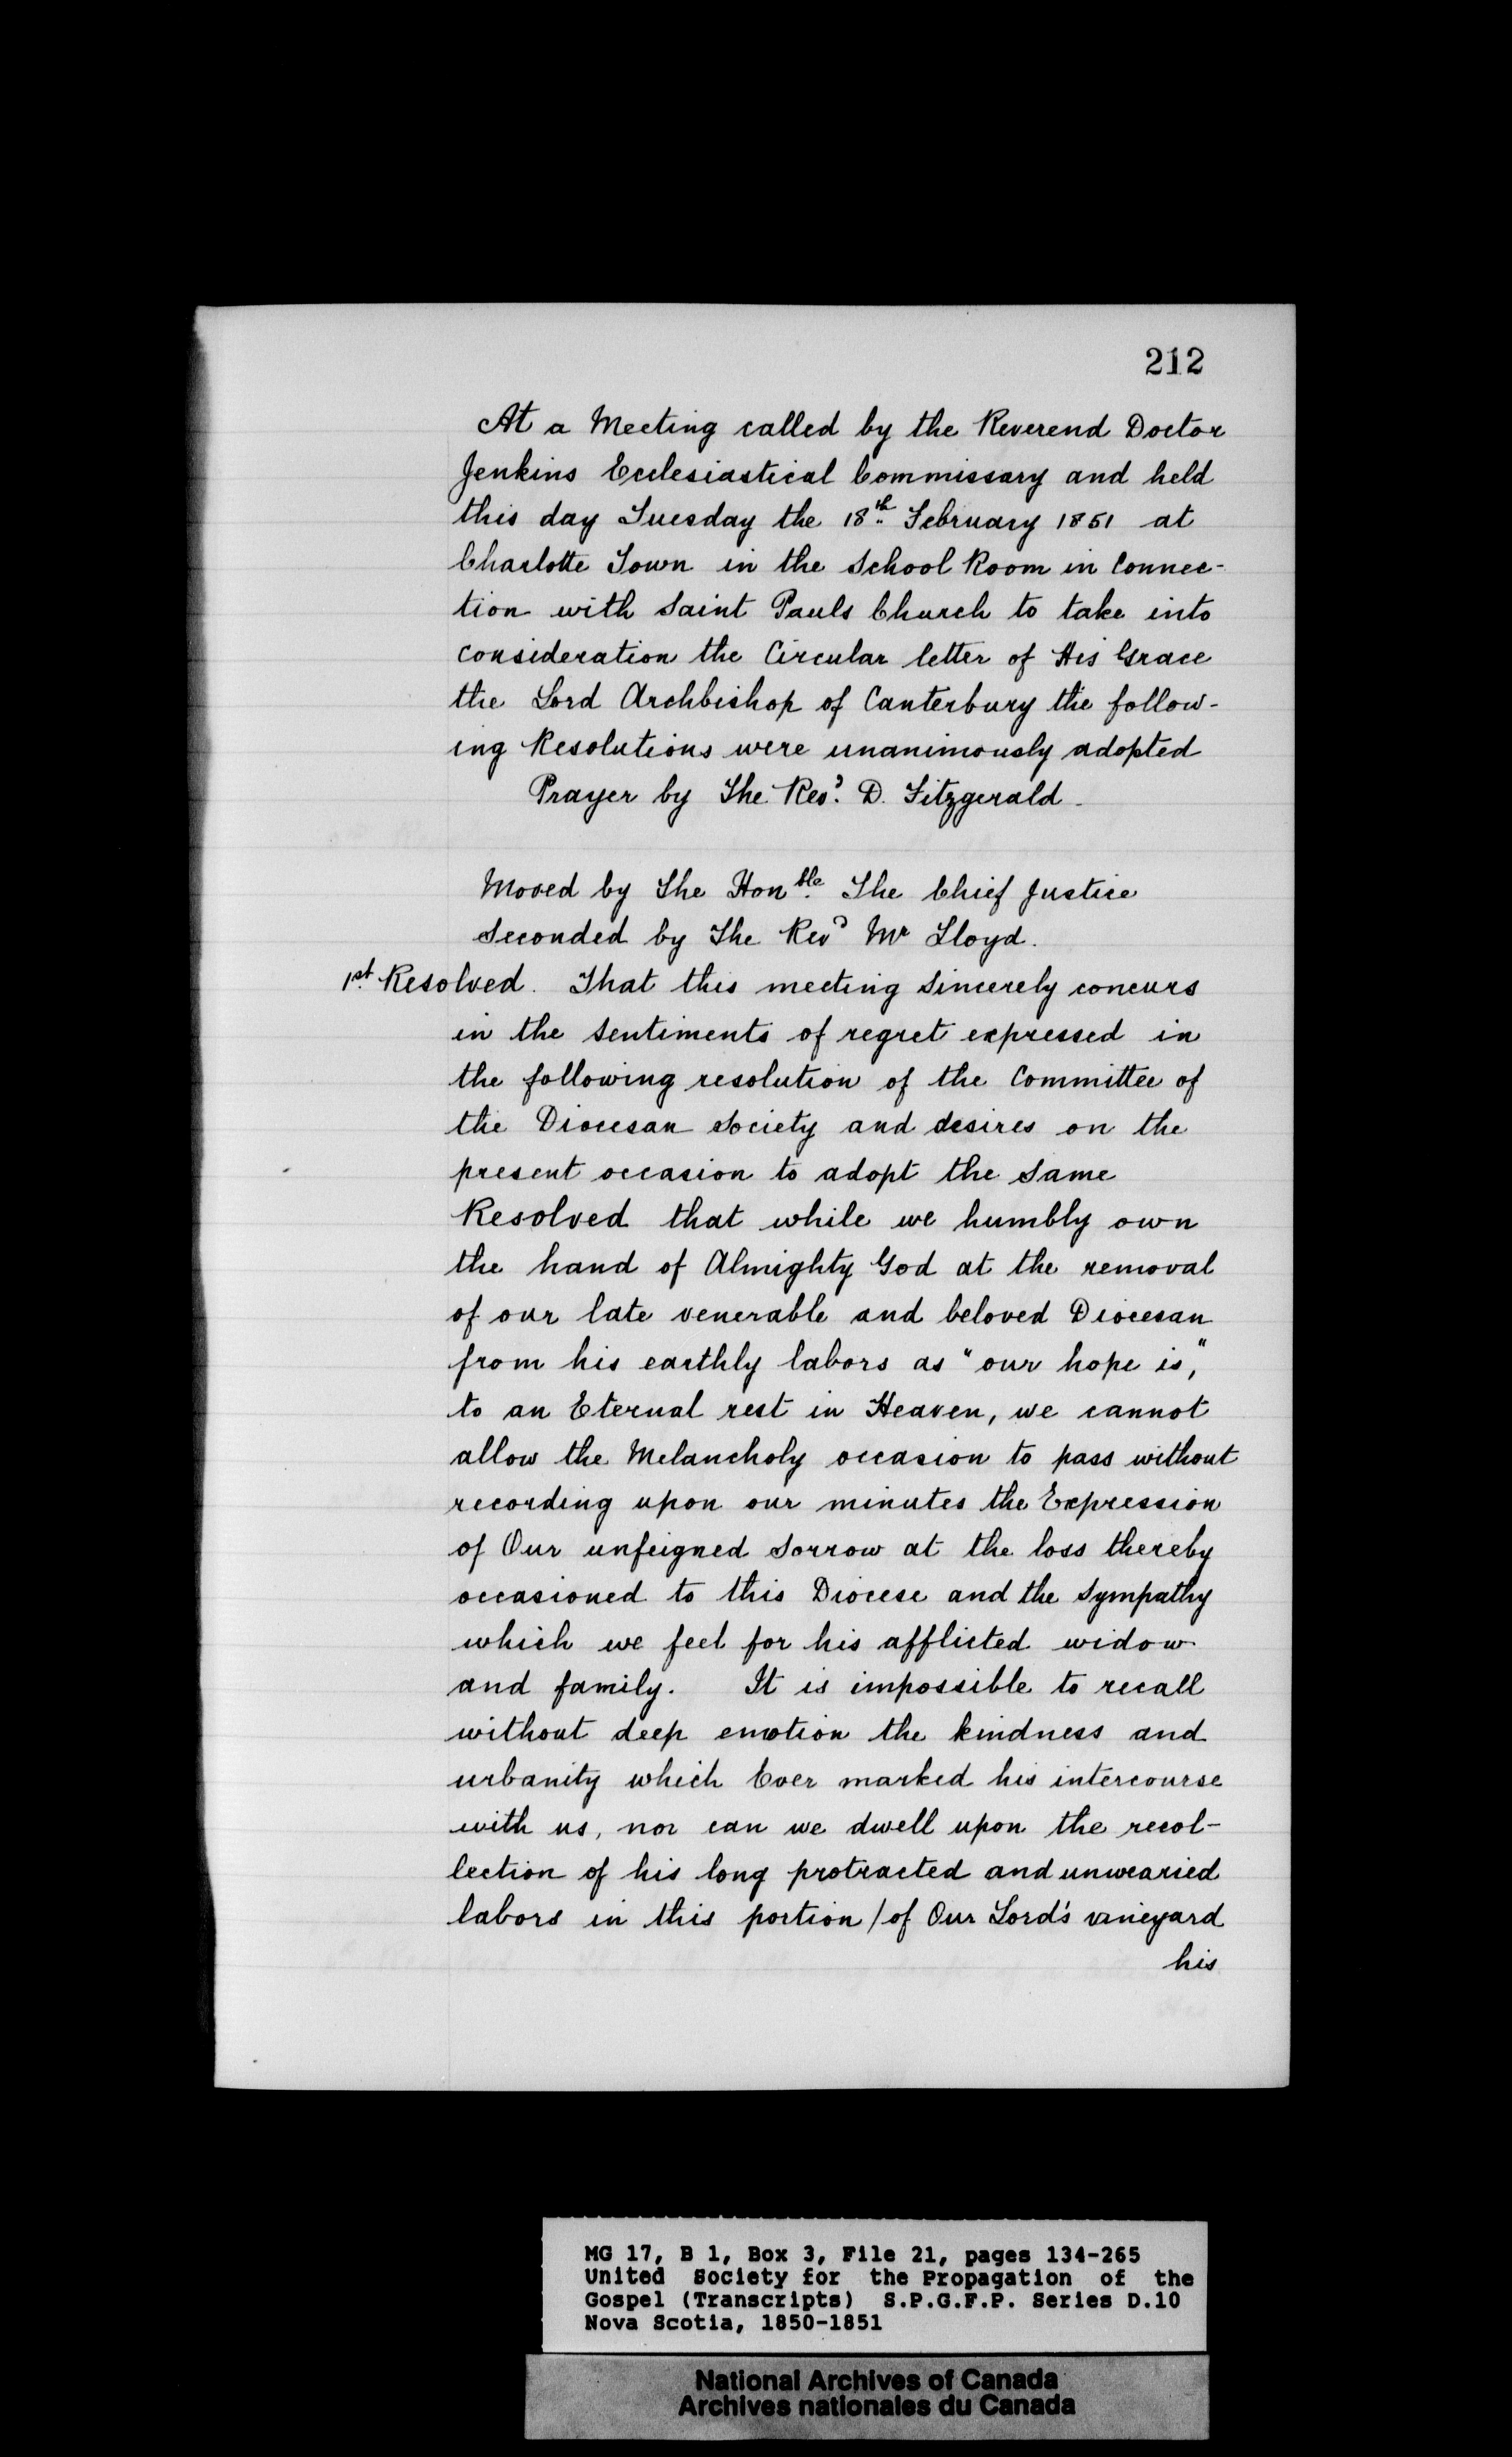 212
At a Meeting called by the Reverend Doctor
Jenkins Ecclesiastical Commissary and held
this day Tuesday the 18th February 1851 at
Charlotte Town in the School Room in Connec-
tion with Saint Pauls Church to take into
consideration the Circular letter of His Grace
the Lord Archbishop of Canterbury the follow-
ing Resolutions were unanimously adopted
Prayer by The Revd. D. Fitzgerald.
Moved by The Honble. The Chief Justice
Seconded by The Revd Mr Lloyd.
1st. Resolved. That this meeting sincerely concurs
in the sentiments of regret expressed in
the following resolution of the Committee of
the Diocesan Society and desires on the
present occasion to adopt the same
Resolved that while we humbly own
the hand of Almighty God at the removal
of our late venerable and beloved Diocesan
from his earthly labors as "our hope is,"
to an Eternal rest in Heaven, we cannot
allow the Melancholy occasion to pass without
recording upon our minutes the Expression
of Our unfeigned sorrow at the loss thereby
occasioned to this Diocese and the sympathy
which we feel for his afflicted widow
and family. It is impossible to recall
without deep emotion the kindness and
urbanity which Ever marked his intercourse
with us, nor can we dwell upon the recol-
lection of his long protracted and unwearied
labors in this portion / of Our Lord's vineyard
his
MG 17, B 1, Box 3, File 21, pages 134-265
United Society for the Propagation of the
Gospel (Transcripts) S.P.G.F.P. Series D.10
Nova Scotia, 1850-1851
National Archives of Canada
Archives nationales du Canada